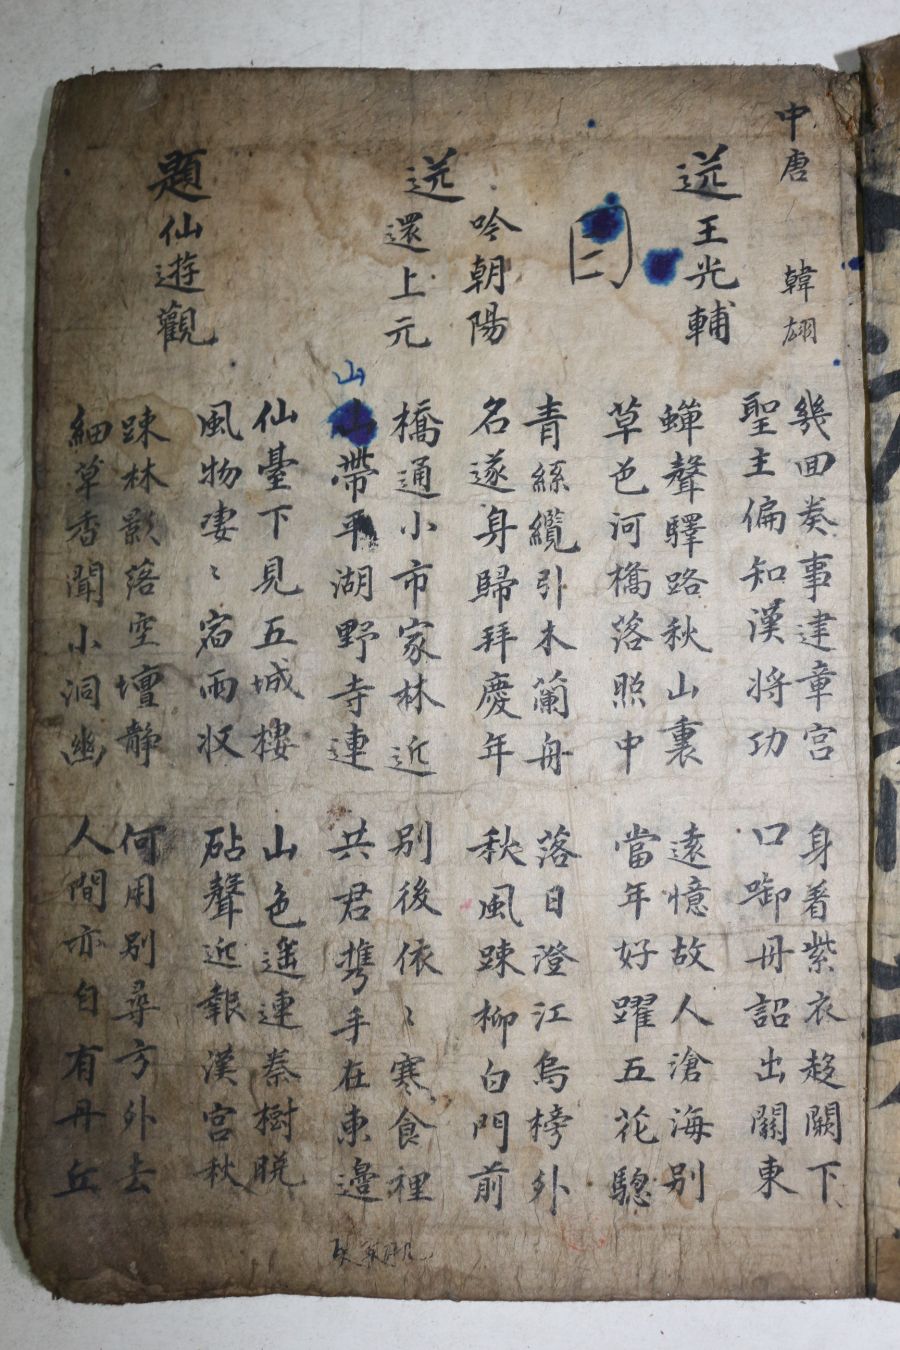 中唐 韓翃
送王光輔
幾回奏事建章宮 身着紫衣趍闕下
聖主偏知漢將功 口啣丹詔出關東
蟬聲驛路秋山裏 遠憶故人滄海別
草色河橋落照中 當年好躍五花驄
二
青絲纜引木蘭舟 落日澄江烏榜外
名遂身歸拜慶年 秋風踈柳白門前
吟朝陽
送還上元
橋通小市家林近 別後依〻寒食裡
山帶平湖野寺連 共君携手在東邉
題仙遊觀
仙臺下見五城樓 山色遥連秦樹晩
風物凄〻宿雨收 砧聲近報漢宮秋
踈林影落空壇静 何用別尋方外去
細草香聞小洞幽 人間亦自有丹丘